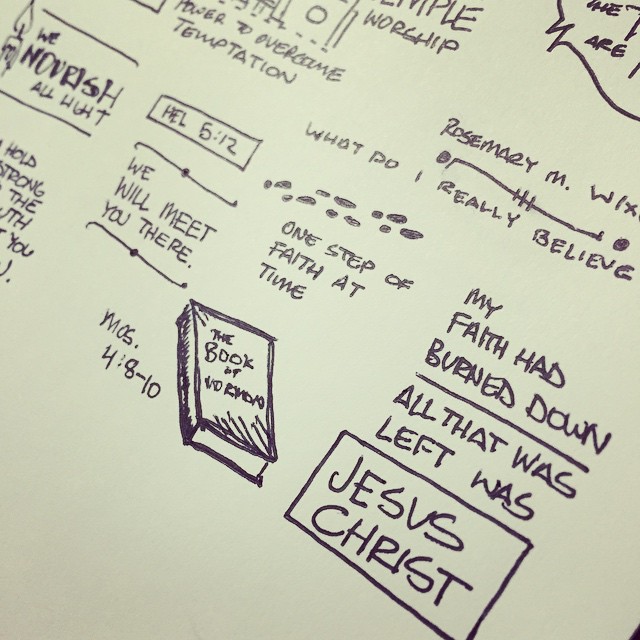 POWER TO OVERCOME
TEMPTATION
TEMPLE
WORSHIP
THE
ARE
WE
NOURISH
ALL
HOLD
STRONG
THE
YOU
HEL 5:12
WE
WILL MEET
YOU THERE.
WHAT DO I
REALLY BELIEVE
ROSEMARY M.
ONE STEP OF
FAITH AT
TIME
MOS.
4:8-10
THE
BOOK
OF
MORMON
MY
FAITH HAD
BURNED DOWN
ALL THAT WAS
LEFT WAS
JESUS
CHRIST